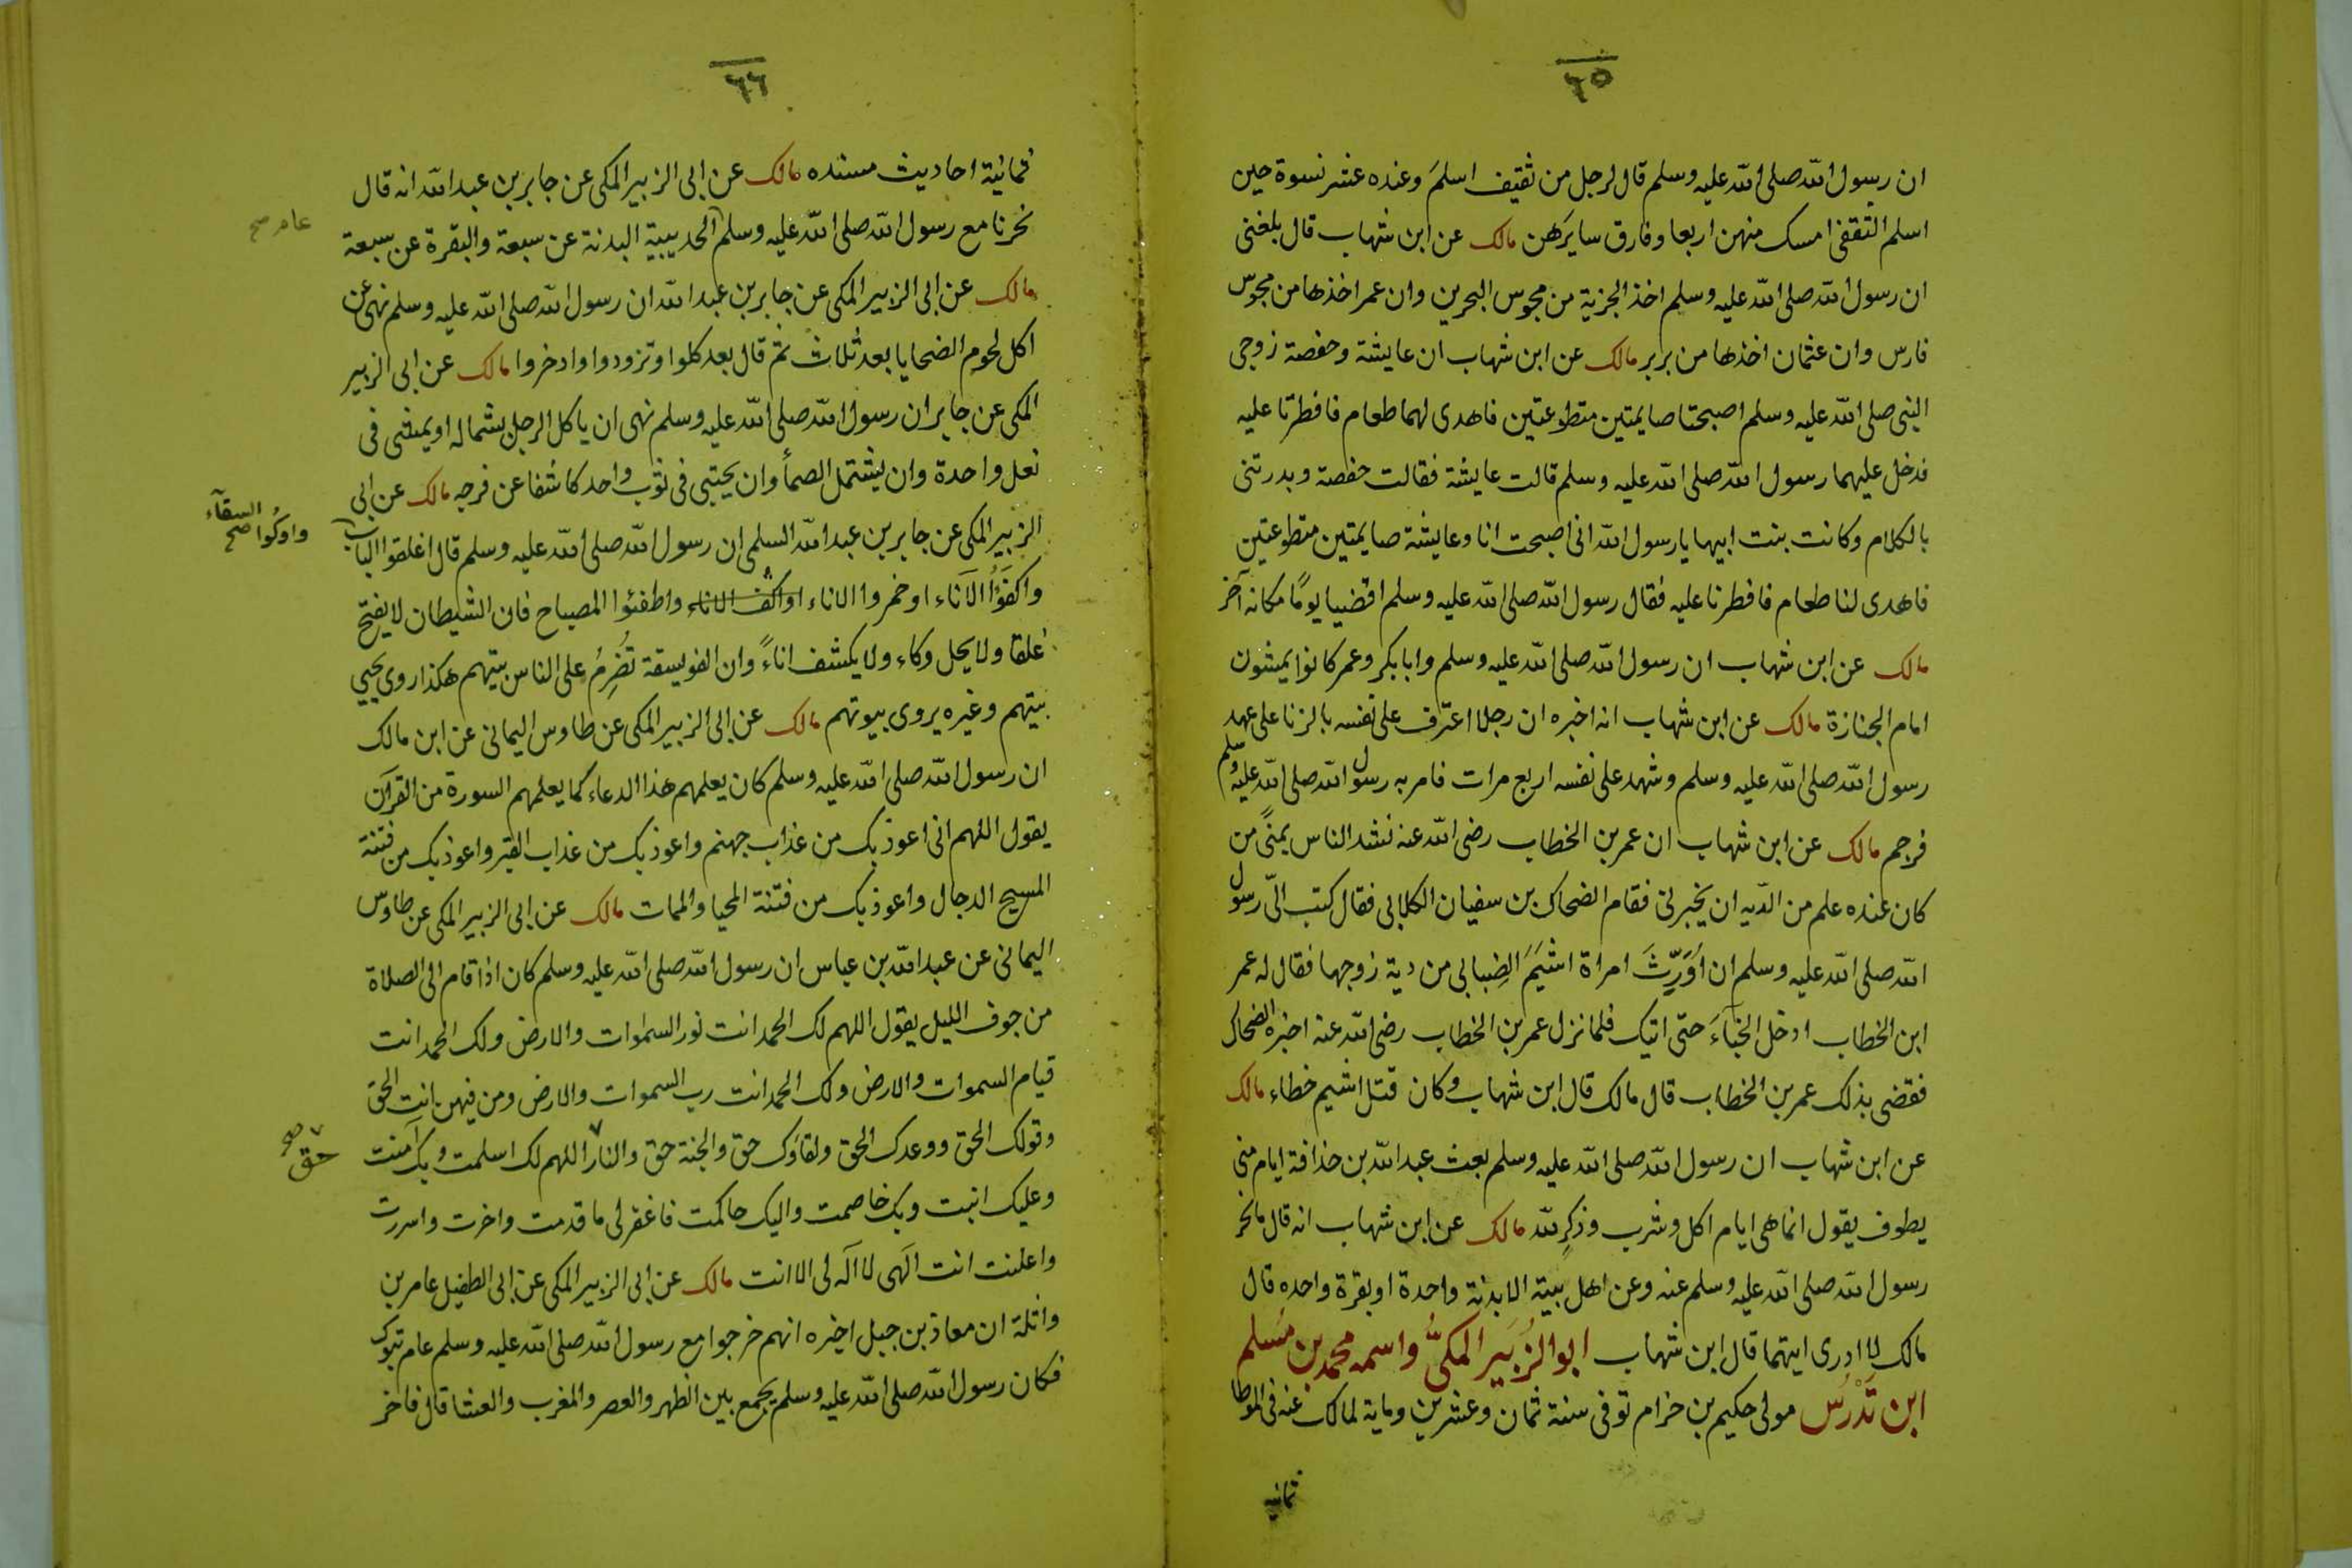 ٦٥
ان رسول الله صلى الله عليه وسلم قال لرجل من ثقيف اسلم وعنده عشر نسوة حين
اسلم الثقفى امسك منهن اربعا وفارق سايرهن مالك عن ابن شهاب قال بلغنى
ان رسول الله صلى الله عليه وسلم اخذ الجزية من مجوس البحرين وان عمر اخذها من مجوس
فارس وان عثمان اخذها من بربر مالك عن ابن شهاب ان عايشة وحفصة زوجى
النبى صلى الله عليه وسلم اصبحتا صايمتين متطوعتين فاهدى لهما طعام فافطرتا عليه
فدخل عليهما رسول الله صلى الله عليه وسلم قالت عايشة فقالت حفصة وبدرتنى
بالكلام وكانت بنت ابيها يا رسول الله انى اصبحت انا وعايشة صايمتين متطوعتين
فاهدى لنا طعام فافطرنا عليه فقال رسول الله صلى الله عليه وسلم اقضيا يومًا مكانه آخر
مالك عن ابن شهاب ان رسول الله صلى الله عليه وسلم وابا بكر وعمر كانوا يمشون
امام الجنازة مالك عن ابن شهاب انه اخبره ان رجلا اعترف على نفسه بالزنا على عهد
رسول الله صلى الله عليه وسلم وشهد على نفسه اربع مرات فامر به رسول الله صلى الله عليه وسلم
فرجم مالك عن ابن شهاب ان عمر بن الخطاب رضى الله عنه نشد الناس بمنًى من
كان عنده علم من الدّيه ان يخبرنى فقام الضحاك بن سفيان الكلابى فقال كتب الىّ رسول
الله صلى الله عليه وسلم ان اُوَرِّثَ امراة اشيَمَ الضِبابى من دية زوجها فقال له عمر
ابن الخطاب ادخل الخبآءَ حتى اتيك فلما نزل عمر بن الخطاب رضى الله عنه اخبره الضحاك
فقضى بذلك عمر بن الخطاب قال مالك قال ابن شهاب وكان قتل اشيم خطاء مالك
عن ابن شهاب ان رسول الله صلى الله عليه وسلم بعث عبد الله بن حذافة ايام منى
يطوف يقول انما هى ايام اكل وشرب وذكرٍ لله مالك عن ابن شهاب انه قال ما نحر
رسول الله صلى الله عليه وسلم عنه وعن اهل بيته الا بدنة واحدة او بقرة واحده قال
مالك لا ادرى ايتهما قال ابن شهاب ابو الزُبَير المكىُّ واسمه محمد بن مُسْلم
ابن تَدْرُس مولى حكيم بن حزام توفى سنة ثمان وعشرين وماية لمالك عنه فى الموطا
ثمانيه
٦٦
ثمانية احاديث مسنده مالك عن ابى الزبير المكى عن جابر بن عبد الله انه قال
نحرنا مع رسول الله صلى الله عليه وسلم الحديبية البدنة عن سبعة والبقرة عن سبعة
عام صح
مالك عن ابى الزبير المكى عن جابر بن عبد الله ان رسول الله صلى الله عليه وسلم نهى عن
اكل لحوم الضحايا بعد ثلاث ثم قال بعد كلوا وتزودوا وادخروا مالك عن ابى الزبير
المكى عن جابر ان رسول الله صلى الله عليه وسلم نهى ان ياكل الرجل بشماله او يمشى فى
نعل واحدة وان يشتمل الصمأ وان يحتبى فى ثوب واحد كاشفا عن فرجه مالك عن ابى
الزبير المكى عن جابر بن عبد الله السلمى ان رسول الله صلى الله عليه وسلم قال اغلقوا الباب
واوكُوا السقآء صح
واكفَؤُا الآناء او خمروا الاناء او اكف الاناء واطفئوا المصباح فان الشيطان لا يفتح
غلقا ولا يحل وكاء ولا يكشف اناءً وان الفويسقة تُضرِمُ على الناس بيتهم هكذا روى يحيي
بيتهم وغيره يروى بيوتهم مالك عن ابى الزبير المكى عن طاوس اليمانى عن ابن مالك
ان رسول الله صلى الله عليه وسلم كان يعلمهم هذا الدعاء كما يعلمهم السورة من القرآن
يقول اللهم انى اعوذ بك من عذاب جهنم واعوذ بك من عذاب القبر واعوذ بك من فتنة
المسيح الدجال واعوذ بك من فتنة المحيا والممات مالك عن ابى الزبير المكى عن طاوس
اليمانى عن عبد الله بن عباس ان رسول الله صلى الله عليه وسلم كان اذا قام الى الصلاة
من جوف الليل يقول اللهم لك الحمد انت نور السموات والارض ولك الحمد انت
قيام السموات والارض ولك الحمد انت رب السموات والارض ومن فيهن انت الحق
وقولك الحق ووعدك الحق ولقاؤك حق والجنة حق والنار اللهم لك اسلمت وبك آمنت
حق صح
وعليك انبت وبك خاصمت واليك حاكمت فاغفر لى ما قدمت واخرت واسررت
واعلنت انت آلهى لا آله لى الا انت مالك عن ابى الزبير المكى عن ابى الطفيل عامر بن
واثلة ان معاذ بن جبل اخبره انهم خرجوا مع رسول الله صلى الله عليه وسلم عام تبوك
فكان رسول الله صلى الله عليه وسلم يجمع بين الظهر والعصر والمغرب والعشا قال فاخر